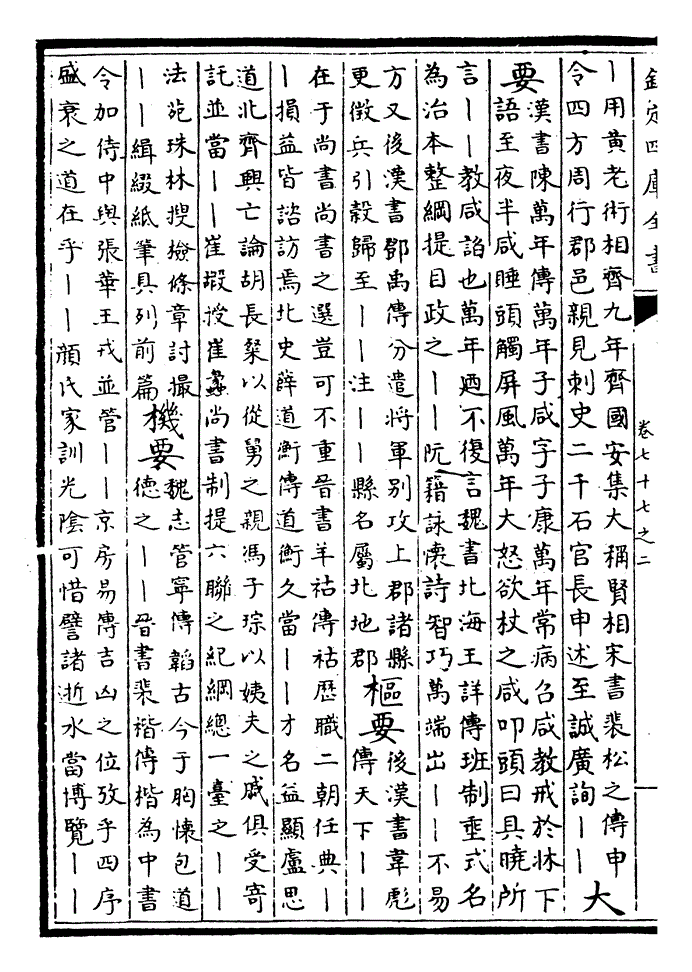 欽定四庫全書
卷七十七之二
｜用黄老術相齊九年齊國安集大稱賢相宋書裴松之傳申
令四方周行郡邑親見刺史二千石官長申述至誠廣詢｜｜
大要
漢書陳萬年傳萬年子咸字子康萬年常病召咸教戒於牀下
語至夜半咸睡頭觸屏風萬年大怒欲杖之咸叩頭曰具曉所
言｜｜教咸謟也萬年廼不復言魏書北海王詳傳班制垂式名
為治本整綱提目政之｜｜阮籍詠懷詩智巧萬端出｜｜不易
方又後漢書鄧禹傳分遣將軍别攻上郡諸縣
更徵兵引穀歸至｜｜注｜｜縣名屬北地郡
樞要
後漢書韋彪
傳天下｜｜
在于尚書尚書之選豈可不重晉書羊祜傳祜歴職二朝任典｜
｜損益皆諮訪焉北史薛道衡傳道衡久當｜｜才名益顯盧思
道北齊興亡論胡長粲以從舅之親馮子琮以姨夫之戚俱受寄
託並當｜｜崔嘏授崔蠡尚書制提六聯之紀綱總一臺之｜｜
法苑珠林搜撿條章討撮
｜｜緝綴紙筆具列前篇
機要
魏志管寧傳韜古今于胸懷包道
德之｜｜晉書裴楷傳楷為中書
令加侍中與張華王戎並管｜｜京房易傳吉凶之位攷乎四序
盛衰之道在乎｜｜顔氏家訓光陰可惜譬諸逝水當博覽｜｜